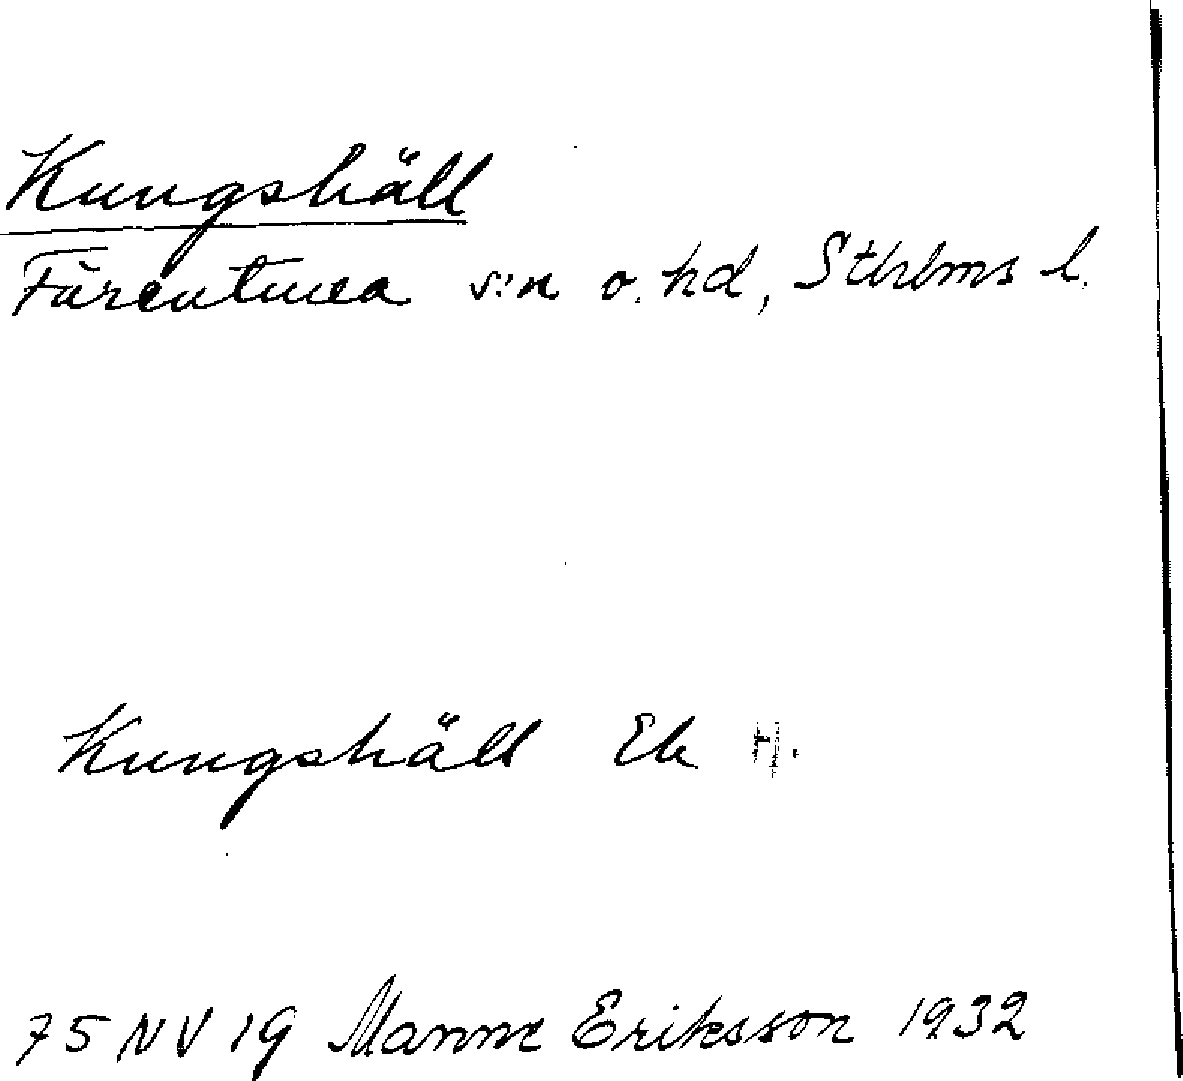 Kungshäll
Färentuna s:n o. hd, Sthlms l.
Kungshäll Ek H.
75 NV 19 Manne Eriksson 1932